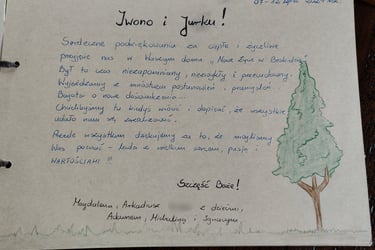 07-12 lipca 2024 rok
Iwono i Jurku!
Serdeczne podziękowania za ciepłe i życzliwe
przyjęcie nas w Waszym domu „Nowe Życie w Beskidzie"
Był to czas niezapomniany, niezwykły i przecudowny.
Wyjeżdżamy z mnóstwem postanowień i przemyśleń.
Bogatsi o nowe doświadczenia.
Chcielibyśmy tu kiedyś wrócić i dopisać, że wszystkie
udało nam się zrealizować.
Przede wszystkim dziękujemy za to, że mogliśmy
Was poznać – ludzi z wielkim sercem, pasją i
WARTOŚCIAMI !!!
Szczęść Boże!
Magdalena, Arkadiusz z dziećmi,
Adamem, Michaliną i